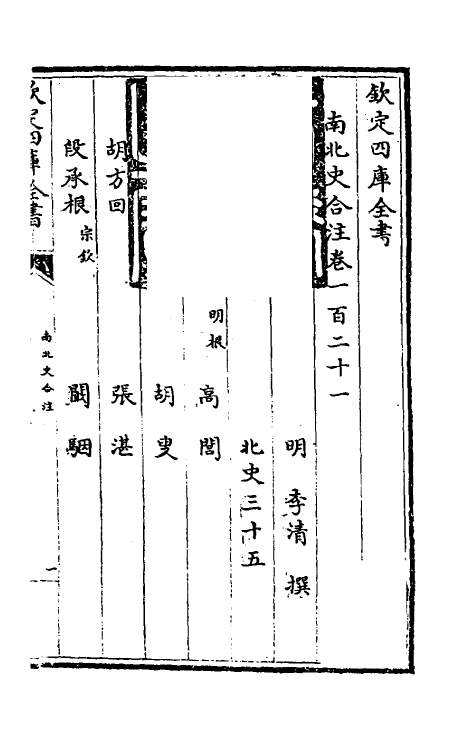 欽定四庫全書
南北史合注卷一百二十一
明 李清 撰
北史三十五
明根 高閭
胡叟
胡方回 張湛
段承根 宗欽 闞駰
欽定四庫全書
南北史合注
一